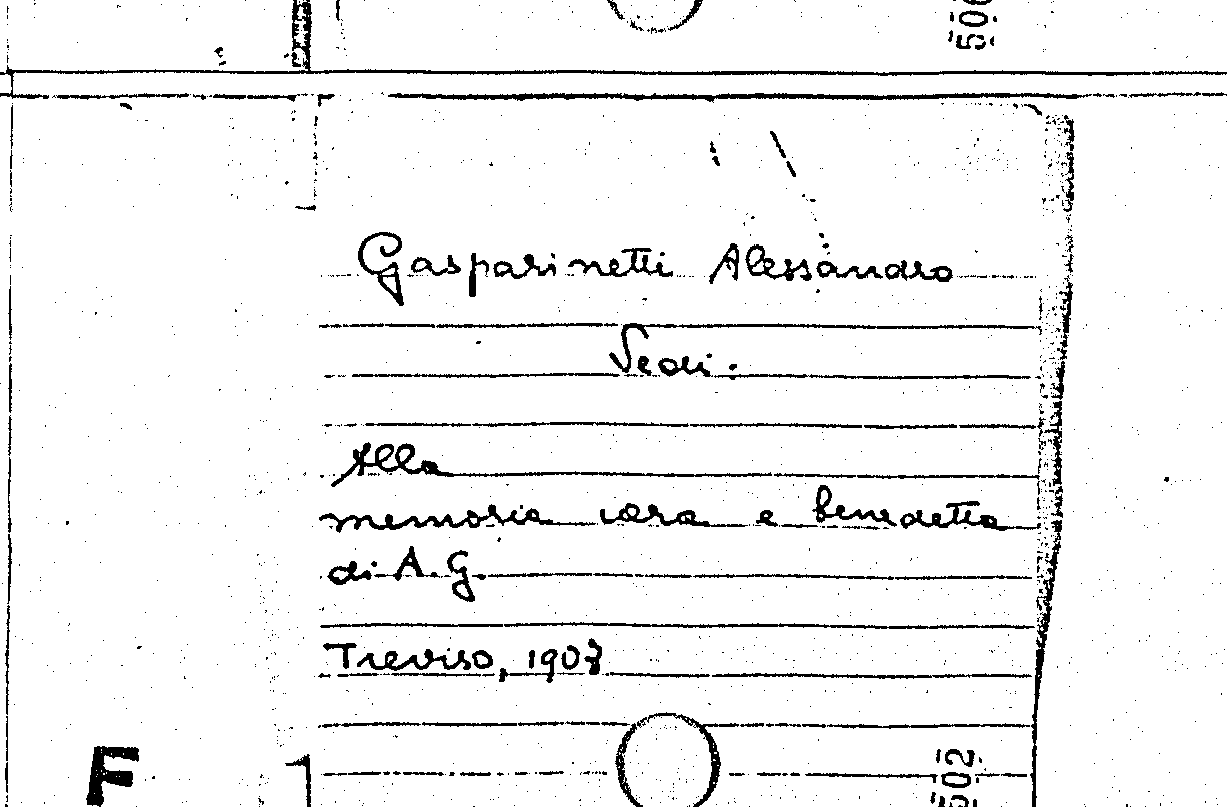 Gasparinetti Alessandro
Vedi:
Alla
memoria cara e benedetta
di A. G.
Treviso, 1907
F
502